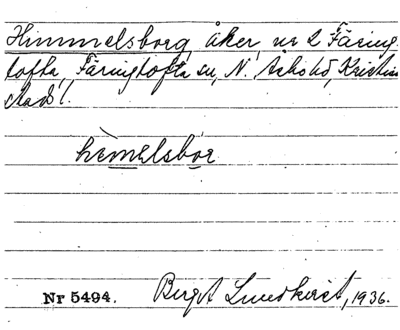 Himmelsborg åker, nr 2 Färing-
tofta, Färingtofta sn, N. Åsbo hd, Kristian-
stads l.
hèmelsbor
Nr 5494. Birgit Lundkvist, 1936.